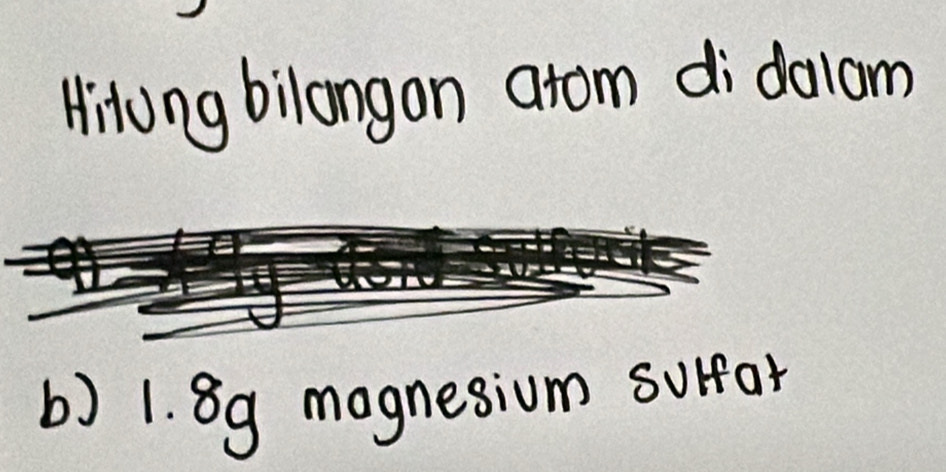 Hitung bilangan atom di dalam
b) 1.8g magnesium sulfat